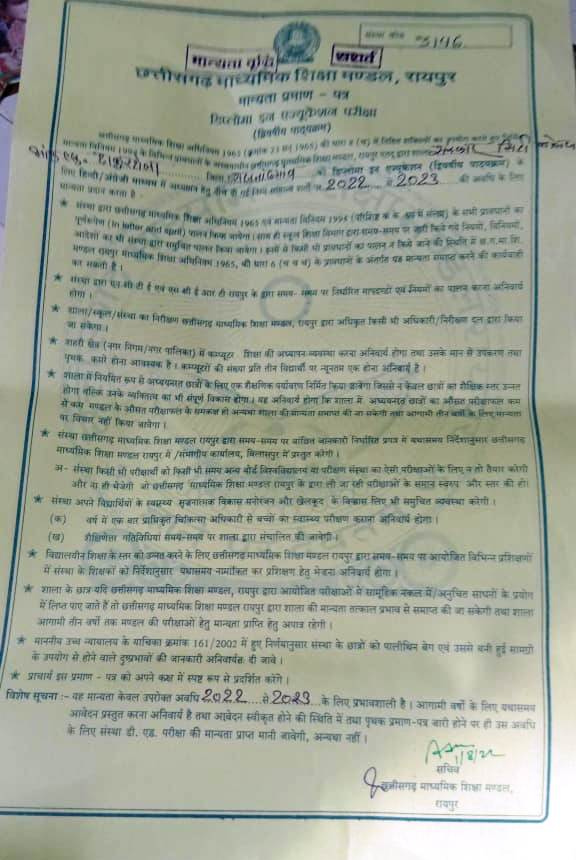 संस्था कोड 3146
मान्यता वृद्धि सशर्त
छत्तीसगढ़ माध्यमिक शिक्षा मण्डल, रायपुर
मान्यता प्रमाण - पत्र
डिप्लोमा इन एज्यूकेशन परीक्षा
(द्विवर्षीय पाठ्यक्रम)
छत्तीसगढ़ माध्यमिक शिक्षा अधिनियम 1965 (क्रमांक 23 सन् 1965) की धारा 8 (च) में निहित शक्तियों का प्रयोग करते हुए
मान्यता विनियम 1994 के विभिन्न प्रावधानों के छत्तीसगढ़ माध्यमिक शिक्षा मण्डल, रायपुर एतद् द्वारा शाला संस्कार सिटी
जिला राजनांदगांव को डिप्लोमा इन एज्यूकेशन (द्विवर्षीय पाठ्यक्रम) के
लिए हिन्दी/अंग्रेजी माध्यम में अध्यापन हेतु नीचे दी गई नियम सामान्य शर्तों पर 2022 से 2023 की अवधि के लिए
मान्यता प्रदान करता है -
★ संस्था द्वारा छत्तीसगढ़ माध्यमिक शिक्षा अधिनियम 1965 एवं मान्यता विनियम 1994 के सभी प्रावधानों का
पूर्णरूपेण (In letter and spirit) पालन किया जावेगा। साथ ही स्कूल शिक्षा विभाग द्वारा समय-समय पर जारी किये गये नियमों, विनियमों,
आदेशों का भी संस्था द्वारा समुचित पालन किया जावेगा। इनमें से किसी भी प्रावधानों का पालन न किये जाने की स्थिति में छ.ग.मा.शि.
मण्डल रायपुर माध्यमिक शिक्षा अधिनियम 1965, की धारा 6 के प्रावधानों के अंतर्गत यह मान्यता समाप्त करने की कार्यवाही
कर सकती है।
★ संस्था द्वारा एन सी टी ई एवं एस सी ई आर टी रायपुर के द्वारा समय- समय पर निर्धारित मापदण्डों एवं नियमों का पालन करना अनिवार्य
होगा।
★ शाला/स्कूल/संस्था का निरीक्षण छत्तीसगढ़ माध्यमिक शिक्षा मण्डल, रायपुर द्वारा अधिकृत किसी भी अधिकारी/निरीक्षण दल द्वारा किया
जा सकेगा।
★ शहरी क्षेत्र (नगर निगम/नगर पालिका) में कम्प्यूटर शिक्षा की अध्यापन व्यवस्था करना अनिवार्य होगा तथा उसके मान से उपकरण तथा
पृथक कमरे होना आवश्यक है। कम्प्यूटरों की संख्या प्रति तीन विद्यार्थी पर न्यूनतम एक होना अनिवार्य है।
★ शाला में नियमित रूप से अध्ययनरत छात्रों के लिए एक शैक्षणिक पर्यावरण निर्मित किया जावेगा जिससे न केवल छात्रों का शैक्षिक स्तर उन्नत
होगा बल्कि उनके व्यक्तित्व का भी संपूर्ण विकास होगा। यह अनिवार्य होगा कि शाला में अध्ययनरत छात्रों का औसत परीक्षाफल कम
से कम मण्डल के औसत परीक्षाफल के समकक्ष हो अन्यथा शाला की मान्यता समाप्त की जा सकेगी तथा आगामी तीन वर्षों के लिए मान्यता
पर विचार नहीं किया जावेगा।
★ संस्था छत्तीसगढ़ माध्यमिक शिक्षा मण्डल रायपुर द्वारा समय-समय पर वांछित जानकारी निर्धारित प्रपत्र में यथासमय निर्देशानुसार छत्तीसगढ़
माध्यमिक शिक्षा मण्डल रायपुर में /संभागीय कार्यालय, बिलासपुर में प्रस्तुत करेगी।
अ- संस्था किसी भी परीक्षार्थी को किसी भी समय अन्य बोर्ड विश्वविद्यालय या परीक्षण संस्था का ऐसी परीक्षाओं के लिए न तो तैयार करेगी
और ना ही भेजेगी जो छत्तीसगढ़ माध्यमिक शिक्षा मण्डल रायपुर के द्वारा ली जा रही परीक्षाओं के समान स्वरूप और स्तर की हो।
★ संस्था अपने विद्यार्थियों के स्वास्थ्य सृजनात्मक विकास मनोरंजन और खेलकूद के विकास लिए भी समुचित व्यवस्था करेगी।
(क) वर्ष में एक बार प्राधिकृत चिकित्सा अधिकारी से बच्चों का स्वास्थ्य परीक्षण कराना अनिवार्य होगा।
(ख) शैक्षणेत्तर गतिविधियां समय-समय पर शाला द्वारा संचालित की जावेगी।
★ विद्यालयीन शिक्षा के स्तर को उन्नत करने के लिए छत्तीसगढ़ माध्यमिक शिक्षा मण्डल रायपुर द्वारा समय-समय पर आयोजित विभिन्न प्रशिक्षणों
में संस्था के शिक्षकों को निर्देशानुसार यथासमय नामांकित कर प्रशिक्षण हेतु भेजना अनिवार्य होगा।
★ शाला के छात्र यदि छत्तीसगढ़ माध्यमिक शिक्षा मण्डल, रायपुर द्वारा आयोजित परीक्षाओं में सामूहिक नकल में/अनुचित साधनों के प्रयोग
में लिप्त पाए जाते हैं तो छत्तीसगढ़ माध्यमिक शिक्षा मण्डल रायपुर द्वारा शाला की मान्यता तत्काल प्रभाव से समाप्त की जा सकेगी तथा शाला
आगामी तीन वर्षों तक मण्डल की परीक्षाओं हेतु मान्यता प्राप्ति हेतु अपात्र रहेगी।
★ माननीय उच्च न्यायालय के याचिका क्रमांक 161/2002 में हुए निर्णयानुसार संस्था के छात्रों को पालीथिन बेग एवं उससे बनी हुई सामग्री
के उपयोग से होने वाले दुष्प्रभावों की जानकारी अनिवार्यतः दी जावे।
★ प्राचार्य इस प्रमाण - पत्र को अपने कक्ष में स्पष्ट रूप से प्रदर्शित करेंगे।
विशेष सूचना :- यह मान्यता केवल उपरोक्त अवधि 2022 से 2023 के लिए प्रभावशाली है। आगामी वर्षों के लिए यथासमय
आवेदन प्रस्तुत करना अनिवार्य है तथा आवेदन स्वीकृत होने की स्थिति में तथा पृथक प्रमाण-पत्र जारी होने पर ही उस अवधि
के लिए संस्था डी. एड. परीक्षा की मान्यता प्राप्त मानी जावेगी, अन्यथा नहीं।
1/8/22
सचिव
छत्तीसगढ़ माध्यमिक शिक्षा मण्डल,
रायपुर